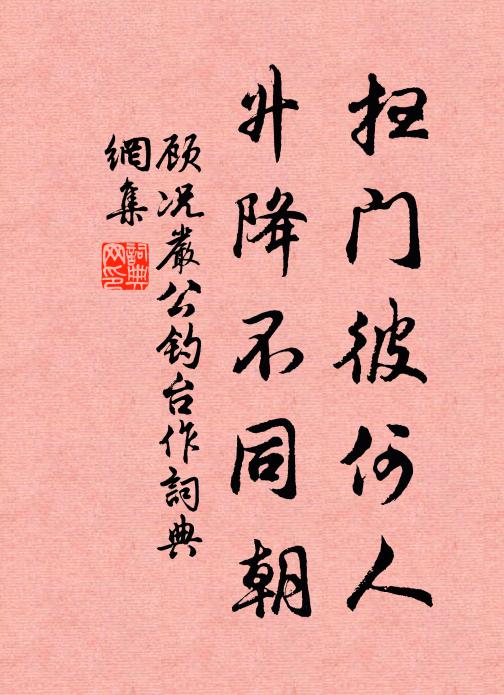 扫门彼何人
升降不同朝
顾况嚴公钓台作詞典
網集
詞典
网印